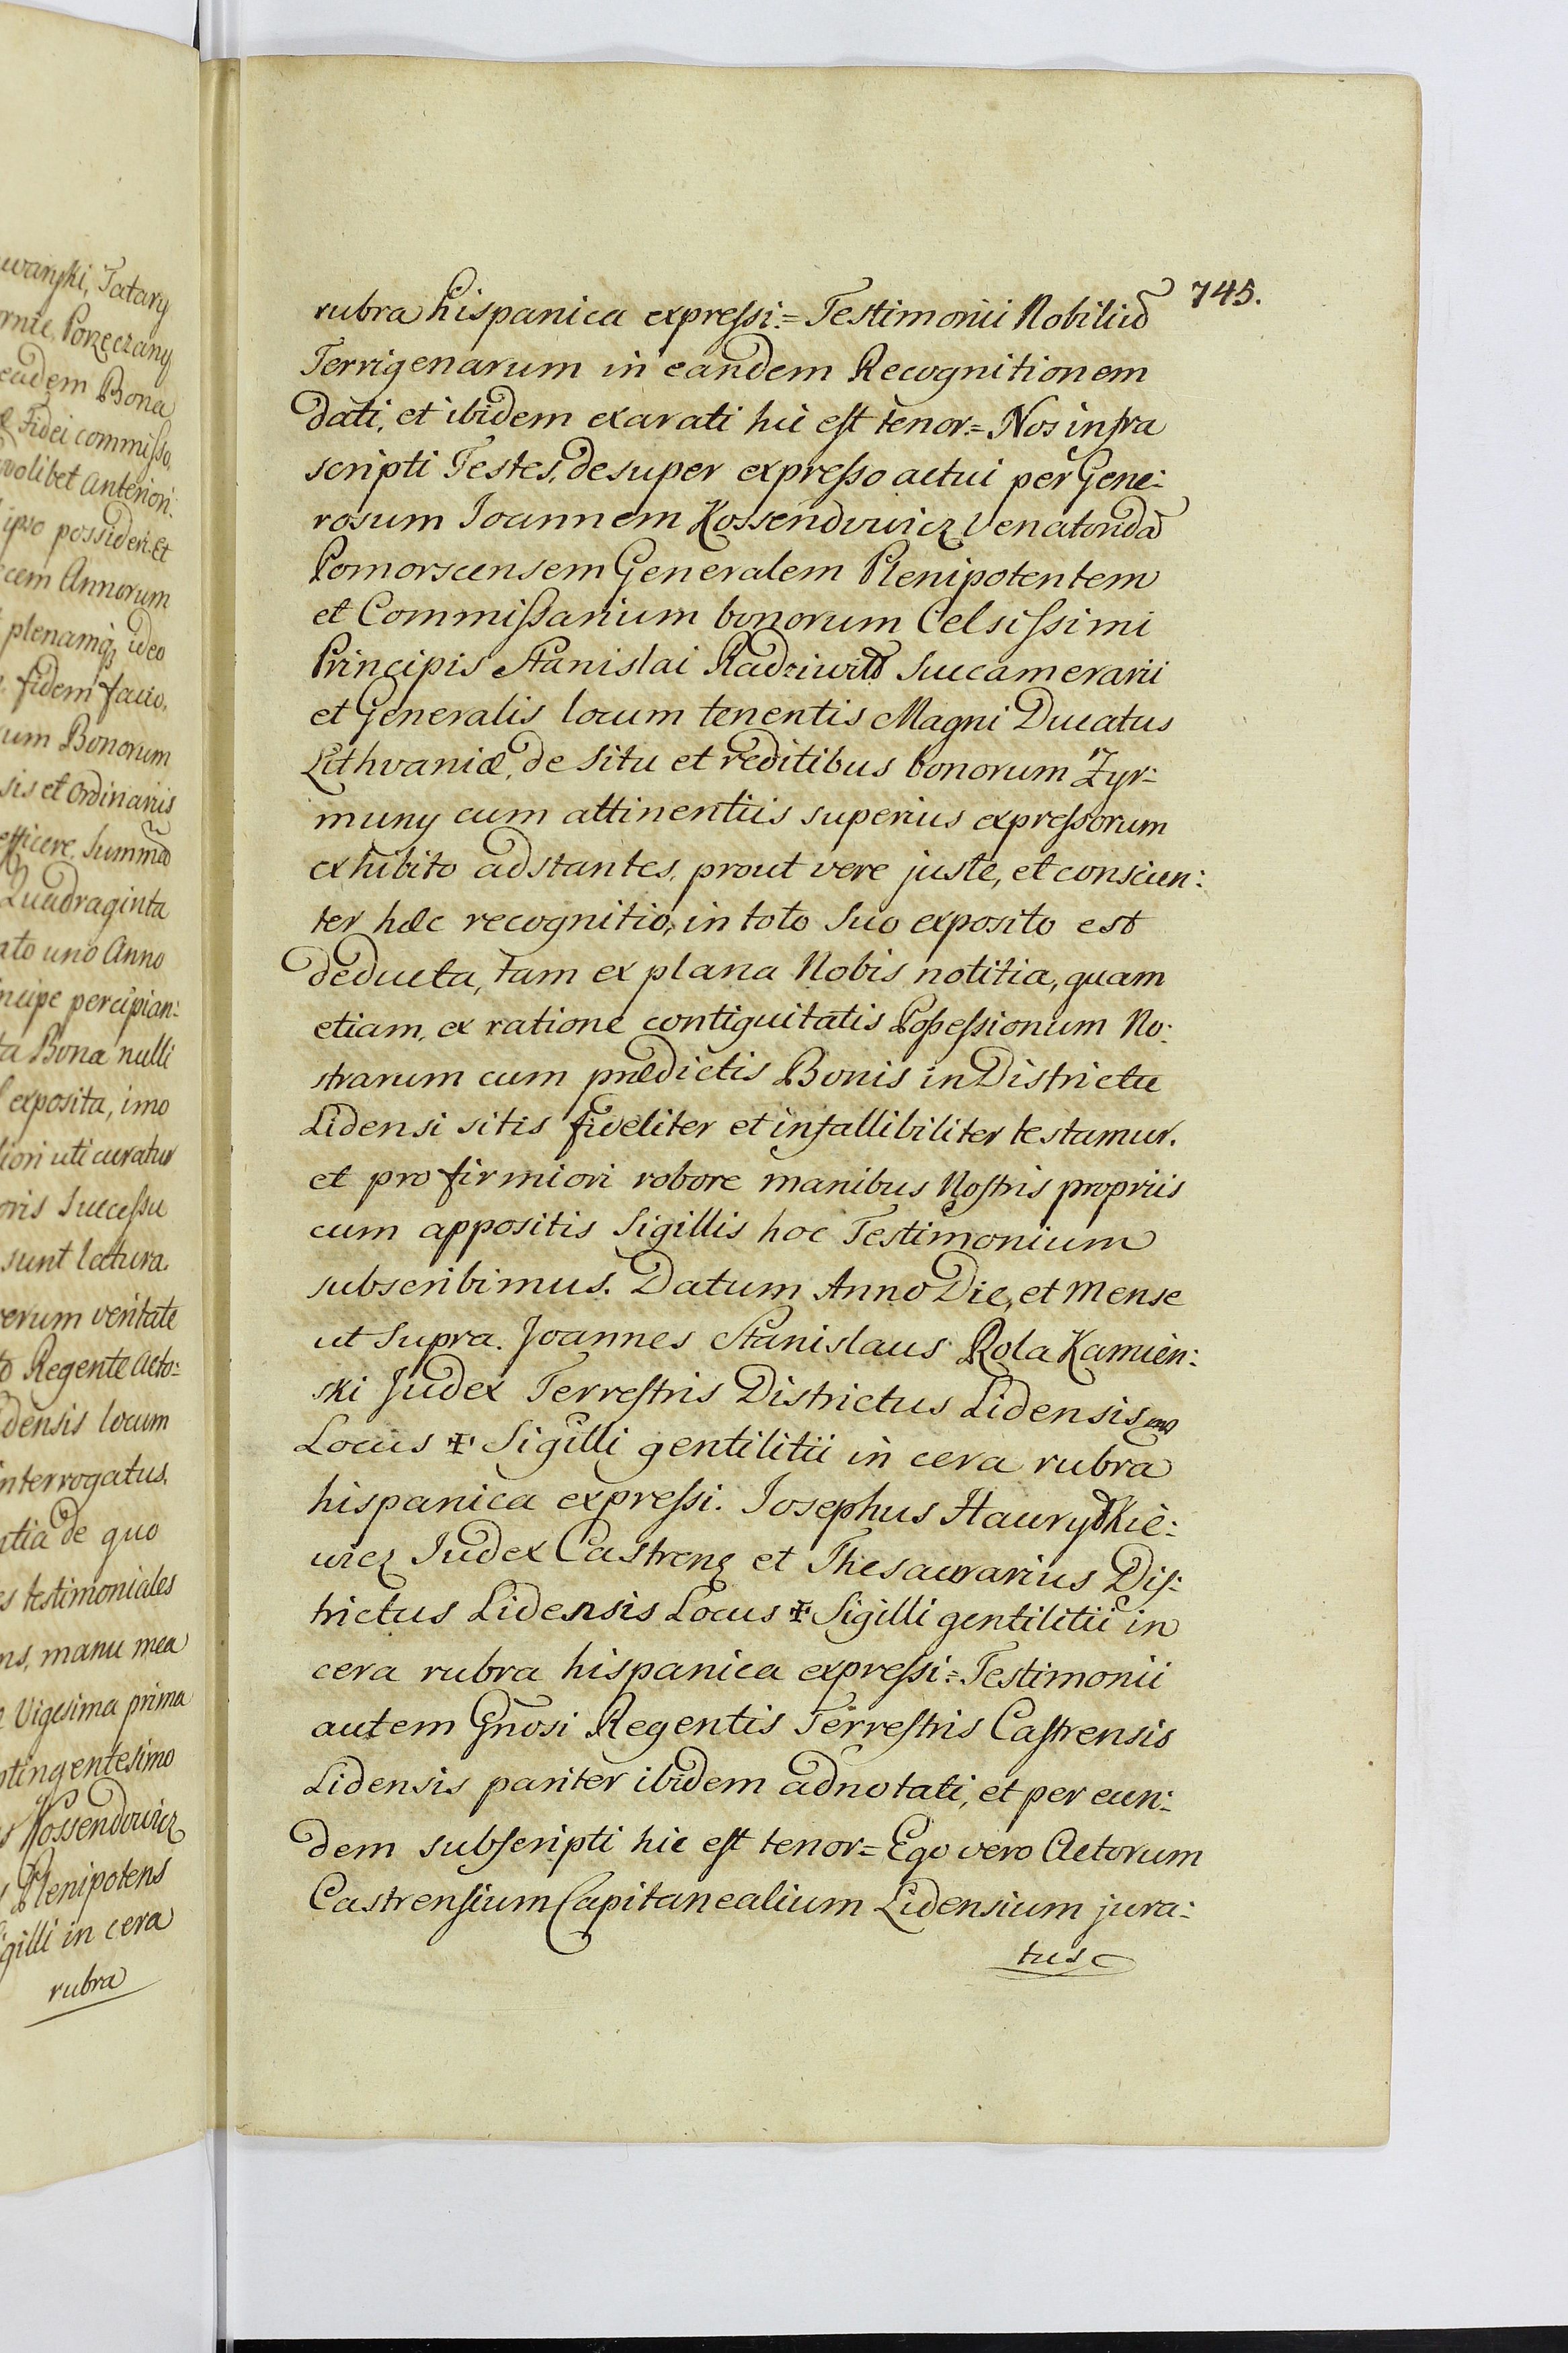 wanſki, Tatary
rnie, Porzeczany
eadem Bona
Fidei commiſso,
volibet anteriori
ipso possideri. Et
cem Annorum
plenamq; ideo
fidem facio,
um Bonorum
sis et Ordinariis
efficere, Summã
Quadraginta
ato uno Anno
ncipe percipian:
ta Bona nulli
exposita, imo
liori uti curatur
oris Succeſsu
sunt latura.
rerum veritate
to Regente Acto:
idensis locum
interrogatus,
de quo
s testimoniales
ns, manu mea
Vigesima prima
ptingentesimo
Kossendowicz
Plenipotens
igilli in cera
rubra
745.
rubra hispanica expreſsi.= Testimonii Nobiliũ
Terrigenarum in eandem Recognitionem
dati, et ibidem exarati hic eſt tenor.= Nos infra
scripti Testes, desuper expreſso actui per Gene:
rosum Joannem Kossendowicz Venatoridã
Pomorscensem Generalem Plenipotentem
et Commiſsarium bonorum Celsiſsimi
Principis Stanislai Radziwiłł Succamerarii
et Generalis locum tenentis Magni Ducatus
Lithvaniæ, de Situ et reditibus bonorum Żyr:
muny cum attinentiis superius expreſsorum
exhibito adstantes, prout vere juste, et conscien:
ter hæc recognitio, in toto Suo exposito est
deducta, tam ex plana Nobis notitia, quam
etiam, ex ratione contiguitatis Poſseſsionum No:
strarum cum prædictis Bonis in Districtu
Lidensi sitis fideliter et infallibiliter testamur.
et pro firmiori robore manibus Noſtris propriis
cum appositis Sigillis hoc Testimonium
subscribimus. Datum Anno Die, et Mense
ut Supra. Joannes Stanislaus Rola Kamien:
ski Judex Terreſtris Districtus Lidensis
Locus ✠ Sigilli gentilitii in cera rubra
hispanica expreſsi. Josephus Hawryłkie:
wicz Judex Castrens et Thesaurarius Diſ:
trictus Lidensis Locus ✠ Sigilli gentilitii in
cera rubra hispanica expreſsi = Testimonii
autem Gnosi Regentis Terreſtris Caſtrensis
Lidensis pariter ibidem adnotati, et per eun:
dem subſcripti hic eſt tenor = Ego vero Actorum
Castrenſium Capitanealium Lidensium jura:
tus